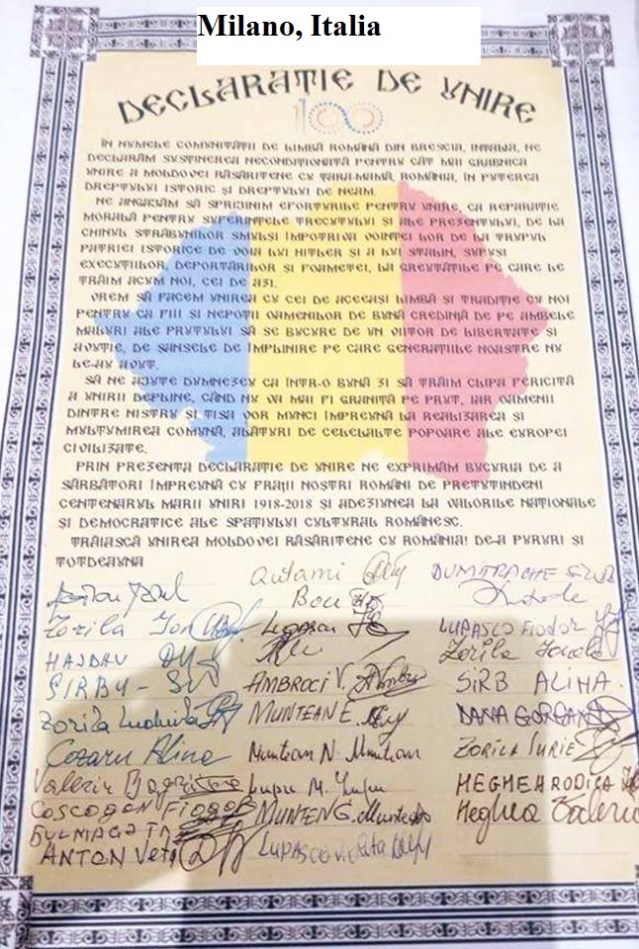 Milano, Italia
DECLARAȚIE DE UNIRE
100
ÎN NUMELE COMUNITĂȚII DE LIMBĂ ROMÂNĂ DIN BRESCIA, ITALIA, NE
DECLARĂM SUSȚINEREA NECONDIȚIONATĂ PENTRU CÂT MAI GRABNICA
UNIRE A MOLDOVEI RĂSĂRITENE CU ȚARA-MAMĂ, ROMÂNIA, ÎN PUTEREA
DREPTULUI ISTORIC ȘI DREPTULUI DE NEAM.
NE ANGAJĂM SĂ SPRIJINIM EFORTURILE PENTRU UNIRE, CA REPARAȚIE
MORALĂ PENTRU SUFERINȚELE TRECUTULUI ȘI ALE PREZENTULUI, DE LA
CHINUL STRĂBUNILOR SMULȘI ÎMPOTRIVA VOINȚEI LOR DE LA TRUPUL
PATRIEI ISTORICE DE VOIA LUI HITLER ȘI A LUI STALIN, SUPUȘI
EXECUȚIILOR, DEPORTĂRILOR ȘI FOAMETEI, LA GREUTĂȚILE PE CARE LE
TRĂIM ACUM NOI, CEI DE AZI.
VREM SĂ FACEM UNIREA CU CEI DE ACEEAȘI LIMBĂ ȘI TRADIȚIE CU NOI
PENTRU CA FIII ȘI NEPOȚII OAMENILOR DE BUNĂ CREDINȚĂ DE PE AMBELE
MALURI ALE PRUTULUI SĂ SE BUCURE DE UN VIITOR DE LIBERTATE ȘI
AVUȚIE, DE ȘANSELE DE ÎMPLINIRE PE CARE GENERAȚIILE NOASTRE NU
LE-AU AVUT.
SĂ NE AJUTE DUMNEZEU CA ÎNTR-O BUNĂ ZI SĂ TRĂIM CLIPA FERICITĂ
A UNIRII DEPLINE, CÂND NU VA MAI FI GRANIȚĂ PE PRUT, IAR OAMENII
DINTRE NISTRU ȘI TISA VOR MUNCI ÎMPREUNĂ LA REALIZAREA ȘI
MULȚUMIREA COMUNĂ, ALĂTURI DE CELELALTE POPOARE ALE EUROPEI
CIVILIZATE.
PRIN PREZENTA DECLARAȚIE DE UNIRE NE EXPRIMĂM BUCURIA DE A
SĂRBĂTORI ÎMPREUNĂ CU FRAȚII NOȘTRI ROMÂNI DE PRETUTINDENI
CENTENARUL MARII UNIRI 1918-2018 ȘI ADEZIUNEA LA VALORILE NAȚIONALE
ȘI DEMOCRATICE ALE SPAȚIULUI CULTURAL ROMÂNESC.
TRĂIASCĂ UNIREA MOLDOVEI RĂSĂRITENE CU ROMÂNIA! DE-A PURURI ȘI
TOTDEAUNA
DUMITRACHE
Zorila Ion LUPASCO FIODOR
HAJDAU
SIRBU AMBROCI V. SIRB ALINA
Zorila Ludmila MUNTEAN E. DANA GORGAN
Cozaru Alina Muntean N. Muntean ZORILA IURIE
Valeriu Lupu M. Lupu HEGHEA RODICA
COSCODAN FIODOR MUNTEAN G. Muntean Heghea Valeriu
ANTON Veta LUPASCO